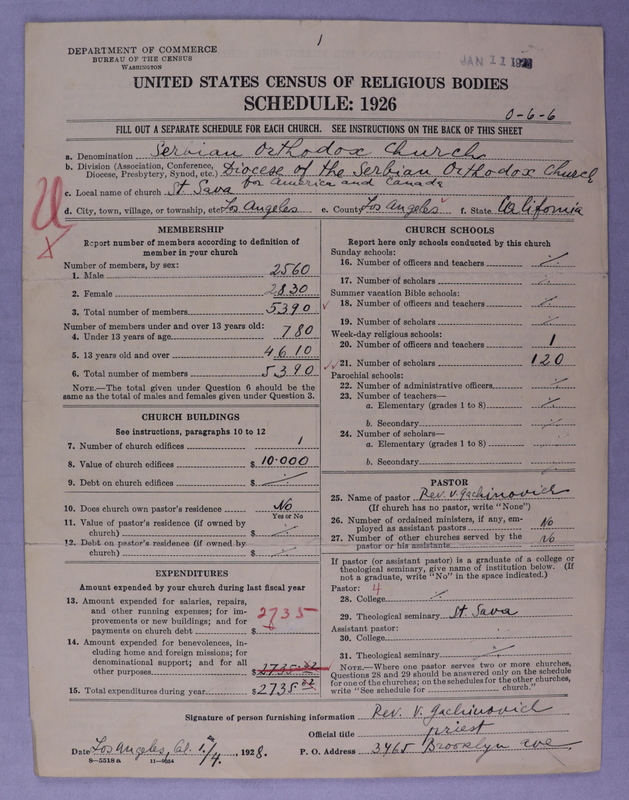 1
DEPARTMENT OF COMMERCE
BUREAU OF THE CENSUS
WASHINGTON
JAN 11 1928
UNITED STATES CENSUS OF RELIGIOUS BODIES
SCHEDULE: 1926
0-6-6
FILL OUT A SEPARATE SCHEDULE FOR EACH CHURCH. SEE INSTRUCTIONS ON THE BACK OF THIS SHEET
a. Denomination Serbian Orthodox Church
b. Division (Association, Conference, Diocese, Presbytery, Synod, etc.) Diocese of the Serbian Orthodox Church
for America and Canada
c. Local name of church St Sava
d. City, town, village, or township, etc Los Angeles e. County Los Angeles f. State California
MEMBERSHIP
Report number of members according to definition of
member in your church
Number of members, by sex:
1. Male 2560
2. Female 2830
3. Total number of members 5390
Number of members under and over 13 years old:
4. Under 13 years of age 780
5. 13 years old and over 4610
6. Total number of members 5390
NOTE.—The total given under Question 6 should be the
same as the total of males and females given under Question 3.
CHURCH BUILDINGS
See instructions, paragraphs 10 to 12
7. Number of church edifices 1
8. Value of church edifices $ 10.000
9. Debt on church edifices $
10. Does church own pastor's residence No
Yes or No
11. Value of pastor's residence (if owned by
church) $
12. Debt on pastor's residence (if owned by
church) $
EXPENDITURES
Amount expended by your church during last fiscal year
13. Amount expended for salaries, repairs,
and other running expenses; for im-
provements or new buildings; and for
payments on church debt $ 2735
14. Amount expended for benevolences, in-
cluding home and foreign missions; for
denominational support; and for all
other purposes $ 2735
15. Total expenditures during year $ 2735
CHURCH SCHOOLS
Report here only schools conducted by this church
Sunday schools:
16. Number of officers and teachers
17. Number of scholars
Summer vacation Bible schools:
18. Number of officers and teachers
19. Number of scholars
Week-day religious schools:
20. Number of officers and teachers 1
21. Number of scholars 120
Parochial schools:
22. Number of administrative officers
23. Number of teachers—
a. Elementary (grades 1 to 8)
b. Secondary
24. Number of scholars—
a. Elementary (grades 1 to 8)
b. Secondary
PASTOR
25. Name of pastor Rev. V. Gachinovich
(If church has no pastor, write "None")
26. Number of ordained ministers, if any, em-
ployed as assistant pastors No
27. Number of other churches served by the
pastor or his assistants No
If pastor (or assistant pastor) is a graduate of a college or
theological seminary, give name of institution below. (If
not a graduate, write "No" in the space indicated.)
Pastor: 4
28. College
29. Theological seminary St. Sava
Assistant pastor:
30. College
31. Theological seminary
NOTE.—Where one pastor serves two or more churches,
Questions 28 and 29 should be answered only on the schedule
for one of the churches; on the schedules for the other churches,
write "See schedule for church."
Signature of person furnishing information Rev. V. Gachinovich
Official title priest
Date Los Angeles, Cal. 1/4, 1928. P. O. Address 3465 Brooklyn ave
8—5518a 11—9024